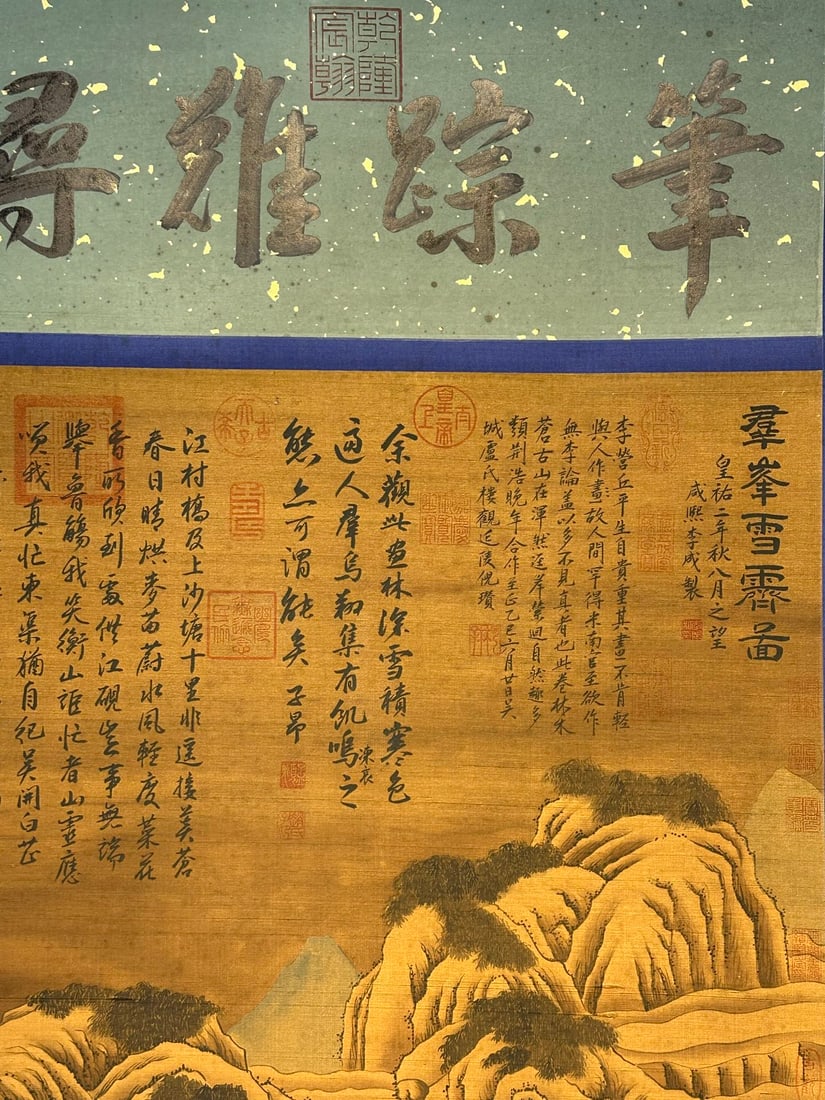 筆踪難尋
乾隆宸翰
羣峯雪霽啚
皇祐二年秋八月之望
咸熙李成製
李營丘平生自貴重其畫不肯輕
與人作畫故人間罕得米南宮至欲作
無李論蓋以多不見真者也此卷林木
蒼古山在渾然迳岸縈迴自然趣多
類荆浩晚年合作至正乙巳六月廿日吴
城盧氏樓觀延陵倪瓚
余觀此畫林深雪積寒色
逼人羣烏翔集有飢鳴之
凍哀
態亦可謂能矣 子昂
江村橋及上沙塘十里非遥接美蒼
春日晴烘麥苗蔚水風輕度菜花
香所欣到處供江硯豈事無端
舉魯觴我笑衡山誰忙者山靈應
嘆我真忙東渠猶自祀吴開白芷